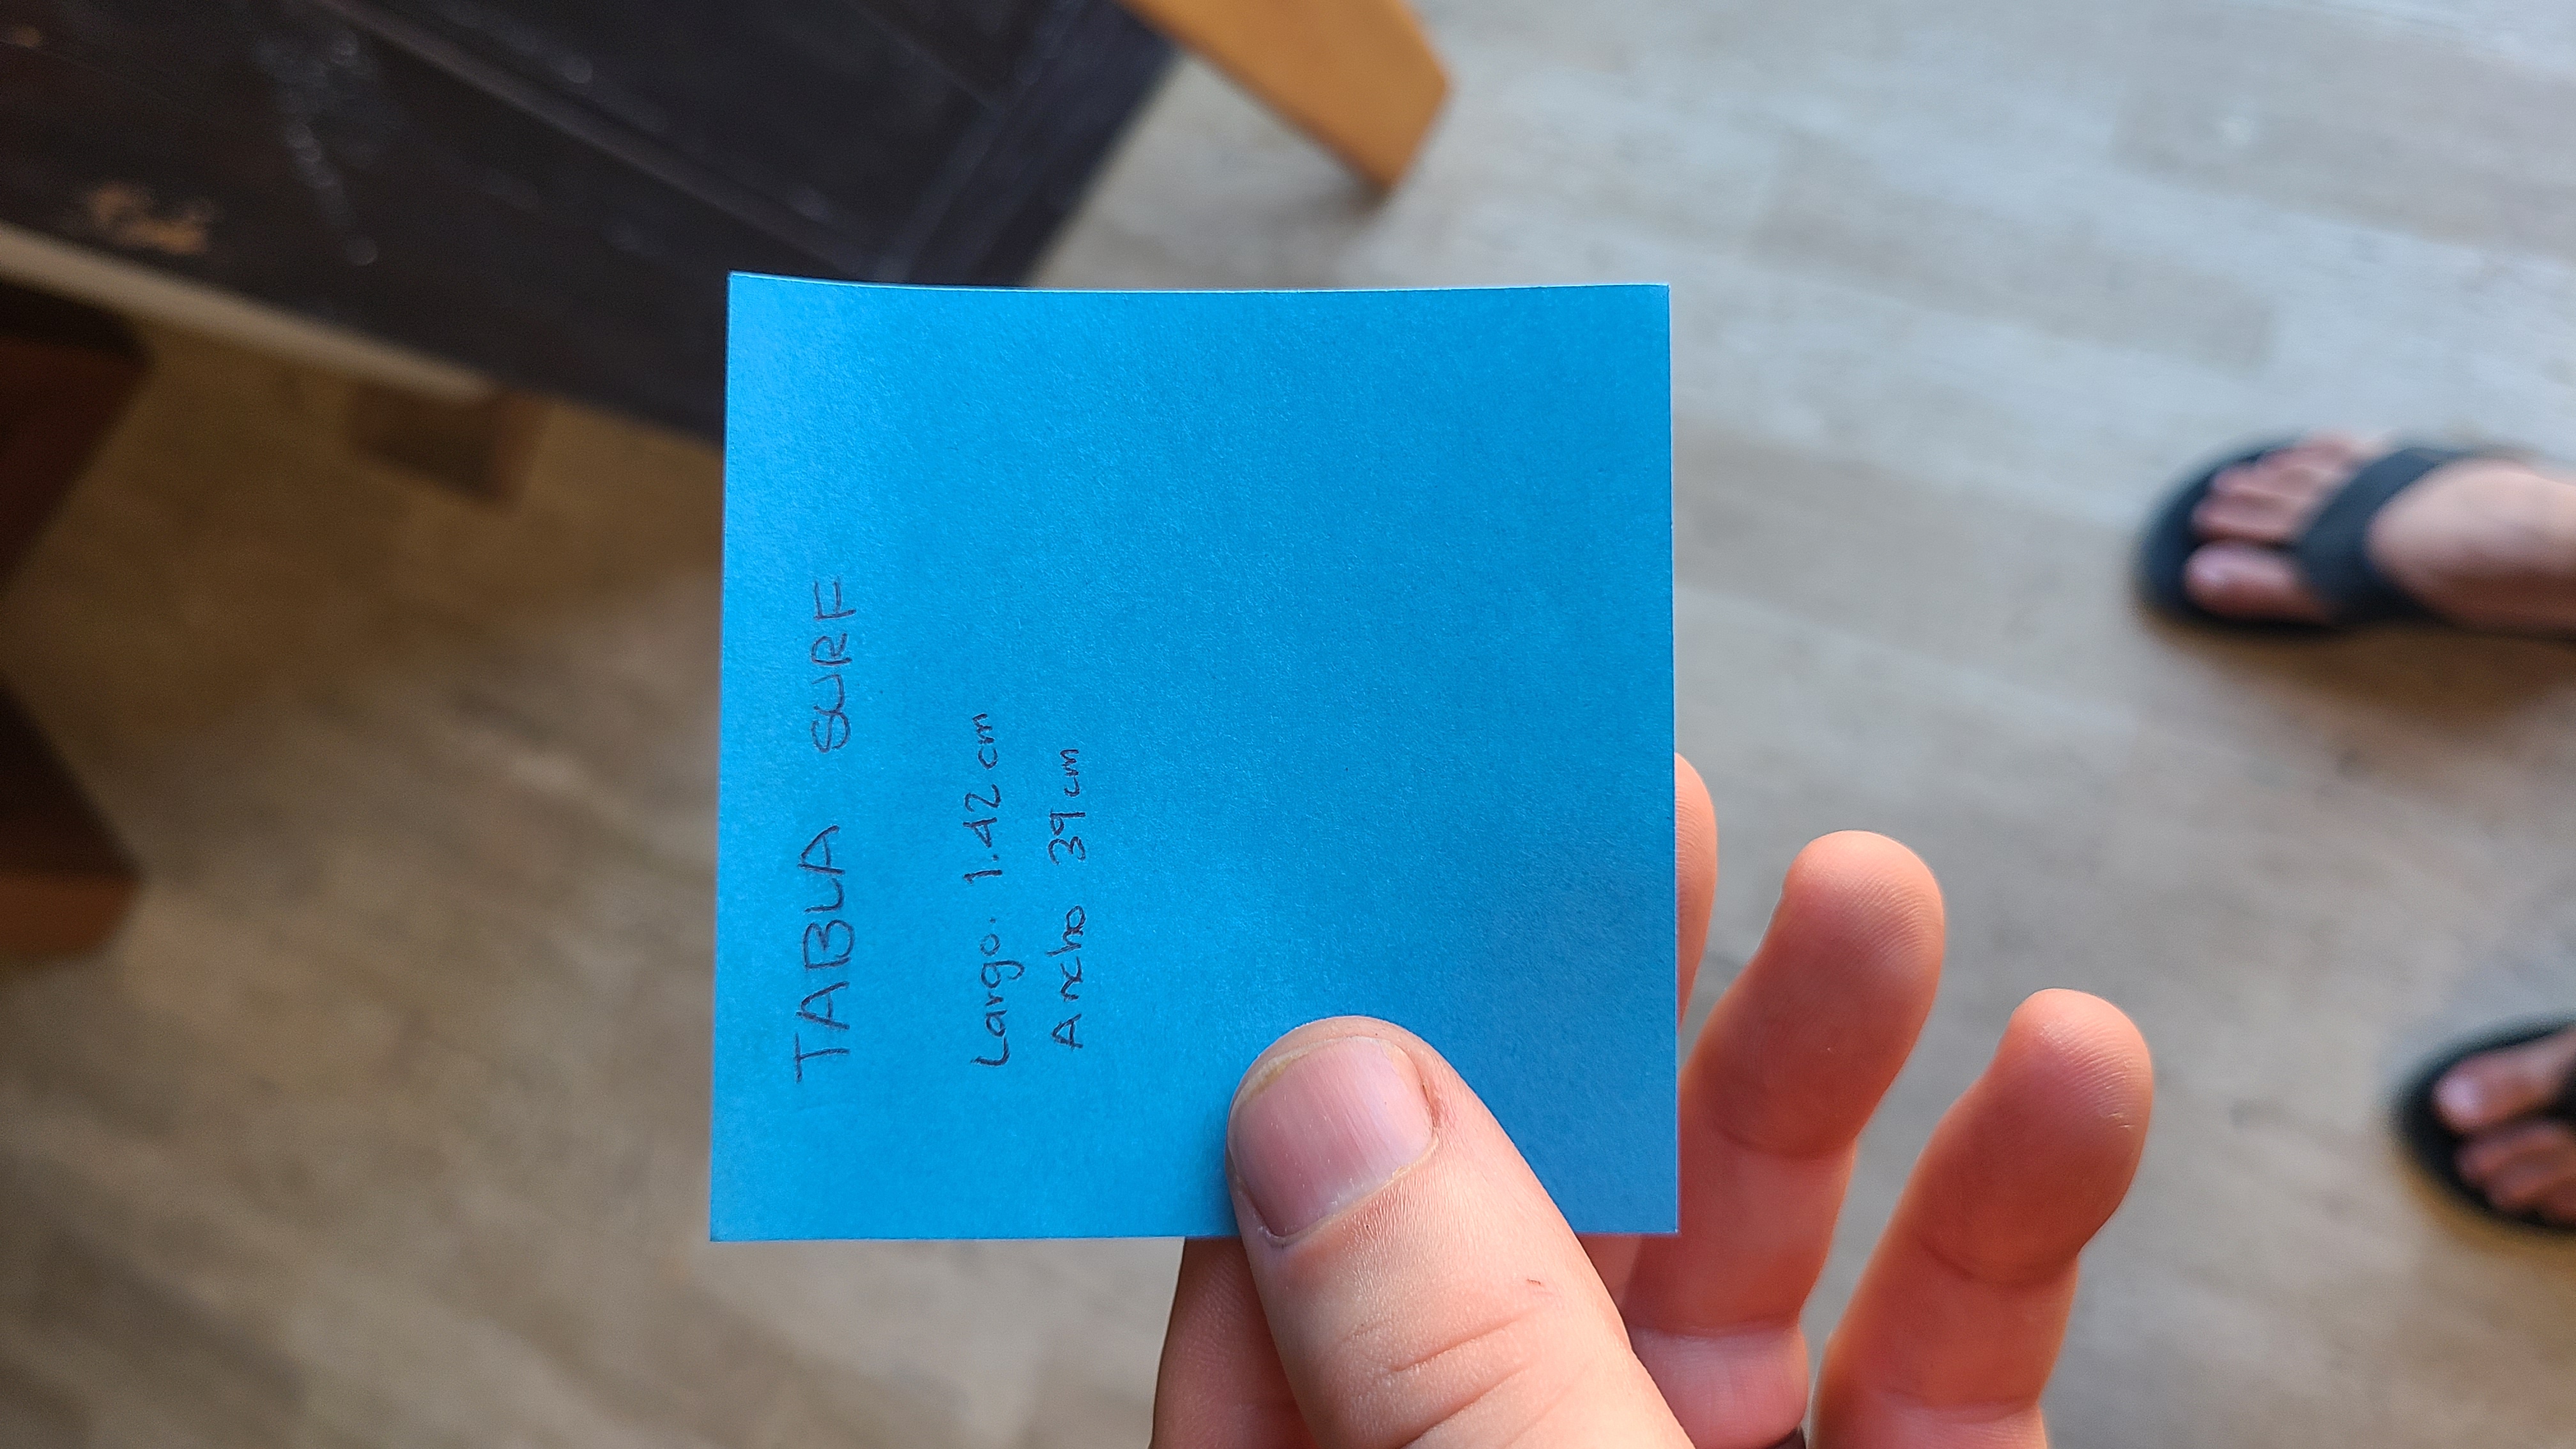 TABLA SURF
Largo. 1.42 cm
Ancho 39 cm